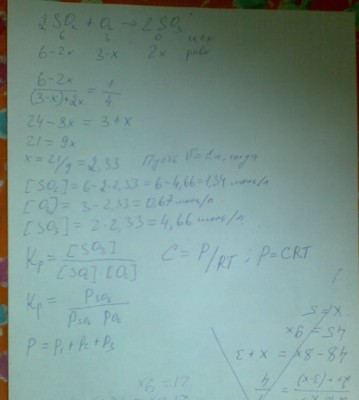 2SO₂ + O₂ → 2SO₃
6 3 0
6-2x 3-x 2x равн
6-2x / (3-x)+2x = 1/4
24-8x = 3+x
21 = 9x
x = 21/9 = 2,33 Пусть V=1л, тогда
[SO₂] = 6-2·2,33 = 6-4,66 = 1,34 моль/л
[O₂] = 3-2,33 = 0,67 моль/л
[SO₃] = 2·2,33 = 4,66 моль/л
Kp = [SO₃] / [SO₂][O₂] C = P/RT, P=CRT
Kp = P SO₃ / P SO₂ P O₂
P = P₁+P₂+P₃
x=5
45 = 9x
48-8x = x+3